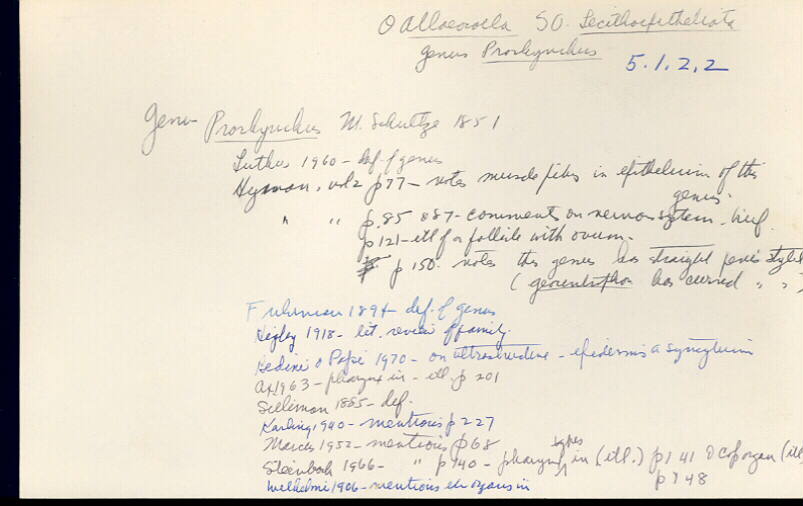 O Alloeocoela SO. Lecithoepitheliata
genus Prorhynchus
5.1.2.2
Genus Prorhynchus M. Schultze 1851
Luther 1960 - def. of genus
Hyman, vol 2 p 77 - notes muscle fibers in epithelium of this genus.
" " p. 85 887 - comments on nervous system - brief.
p 121 - ill of a follicle with ovum.
p 150. notes this genus has straight penis stylet
(geocentrophora has curved " " )
Fuhrmann 1894 - def. of genus
Higley 1918 - lit. review of family.
Bedini & Papi 1970 - on ultrastructure - epidermis a syncytium
Ax 1963 - pharynx in - ill. p 201
Silliman 1885 - def.
Karling 1940 - mentions p 227
Marcus 1952 - mentions p 68
Steinbock 1966 - " p 140 - pharynx types in (ill.) p 141 & cop organ (ill
p 148
Wilhelmi 1906 - mentions exc organs in